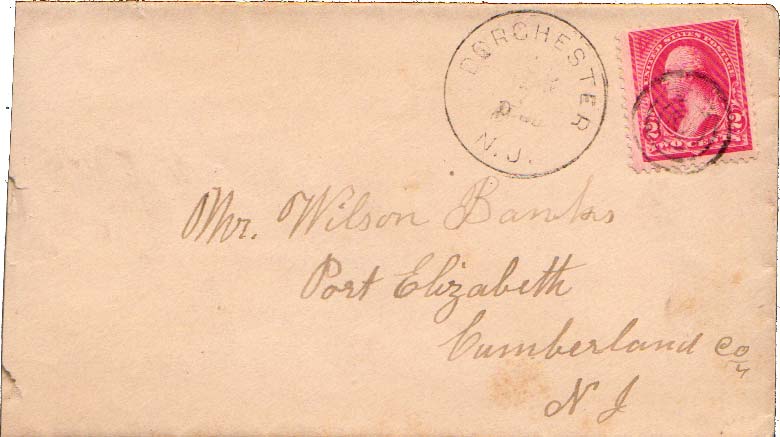 DORCHESTER
N.J.
UNITED STATES POSTAGE
2 2
TWO CENTS
Mr. Wilson Banks
Port Elizabeth
Cumberland Co
N J